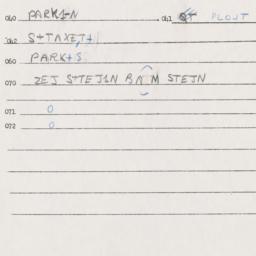 040 PARK1-N 041 PLOUT
042 S+TAXET+
060 PARK+S
070 ZEJ S+TEJ1N BAM STEJN
071 0
072 0